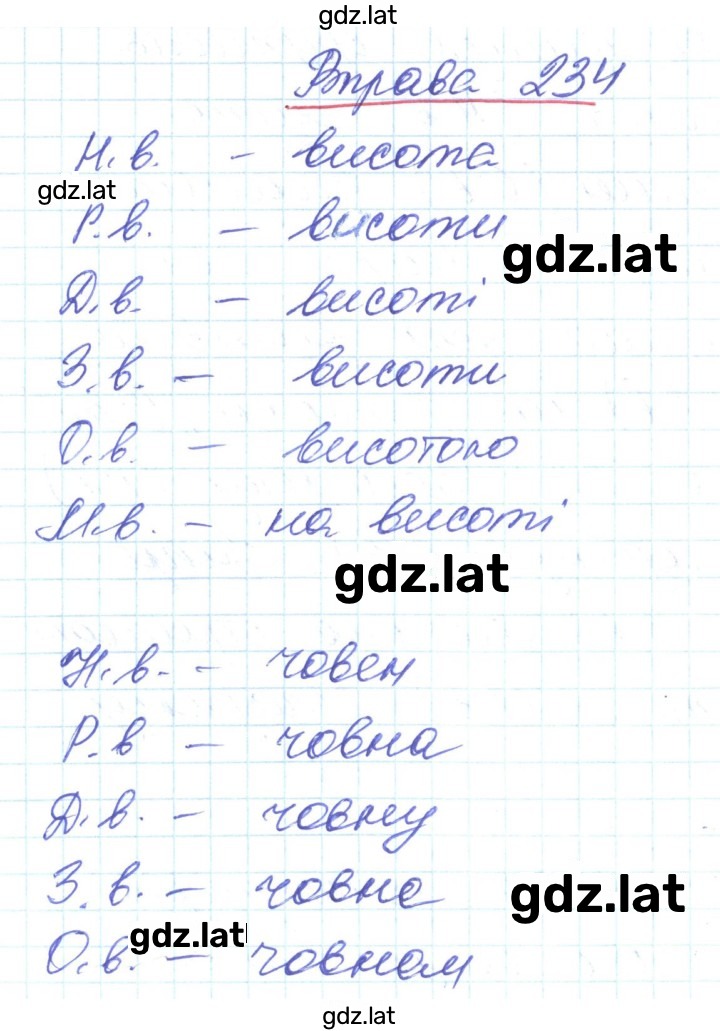 gdz.lat
Вправа 234
Н.в. - висота
gdz.lat
Р.в. - висоти
gdz.lat
Д.в. - висоті
З.в. - висоти
О.в. - висотою
М.в. - на висоті
gdz.lat
Н.в. - човен
Р.в - човна
Д.в. - човну
З.в. - човна
gdz.lat
gdz.lat
О.в. - човном
gdz.lat